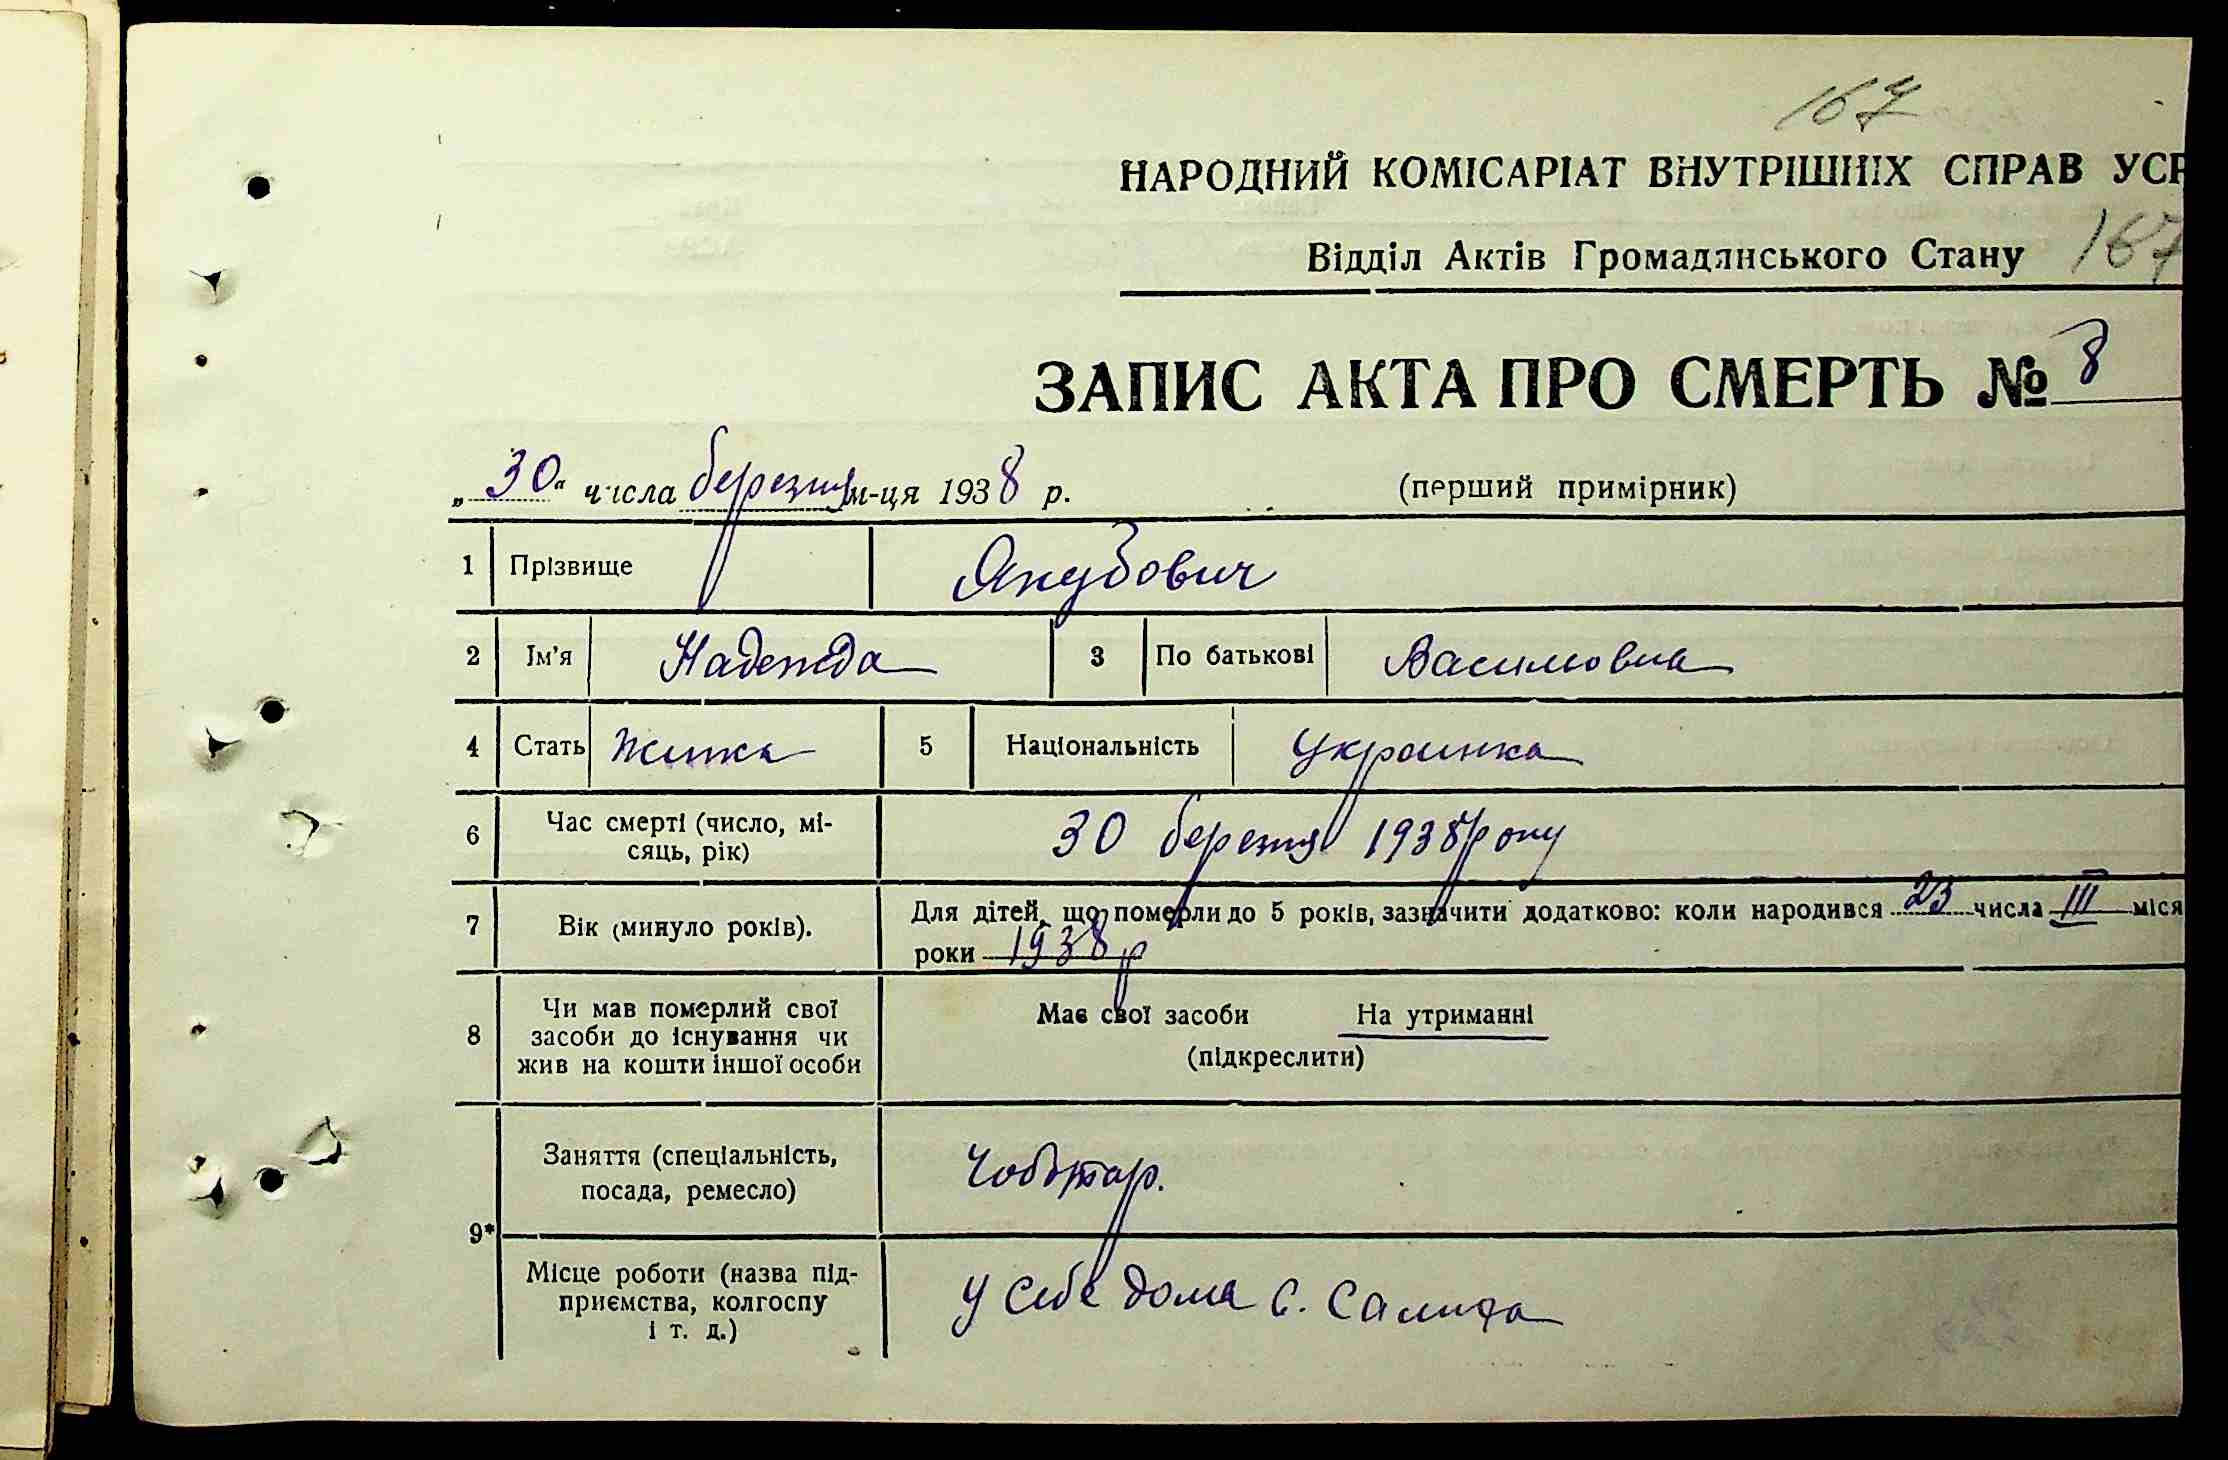 167
НАРОДНИЙ КОМІСАРІАТ ВНУТРІШНІХ СПРАВ УСР
Відділ Актів Громадянського Стану 167
ЗАПИС АКТА ПРО СМЕРТЬ № 8
„30“ числа березня м-ця 1938 р. (перший примірник)
1 Прізвище Якубович
2 Ім'я Надежда 3 По батькові Василовна
4 Стать Жінка 5 Національність Украинка
6 Час смерті (число, мі-
сяць, рік) 30 березня 1938 року
7 Вік (минуло років). Для дітей, що померли до 5 років, зазначити додатково: коли народився 23 числа III міся
роки 1938 р
8 Чи мав померлий свої
засоби до існування чи
жив на кошти іншої особи
Має свої засоби На утриманні
(підкреслити)
9*
Заняття (спеціальність,
посада, ремесло) Чоботар.
Місце роботи (назва під-
приємства, колгоспу
і т. д.) У себе дома с. Салиха